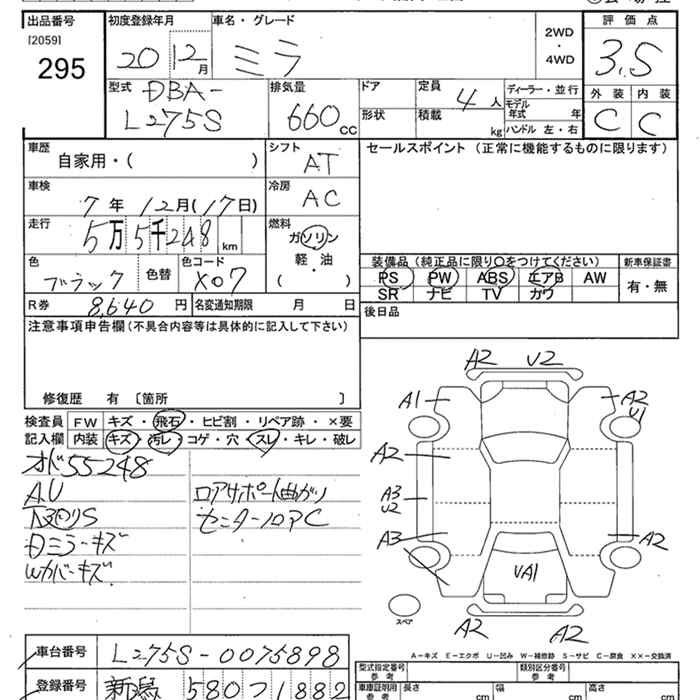 出品番号
[2059]
295
初度登録年月
20 12月
車名・グレード
ミラ
2WD
・
4WD
評価点
3.5
外装 内装
C C
型式
DBA-
L275S
排気量
660cc
ドア
形状
定員
4人
積載
kg
ディーラー・並行
モデル
年式 年
ハンドル 左・右
車歴
自家用・( )
シフト
AT
車検
7年 12月(17日)
冷房
AC
走行
5万5千248km
燃料
ガソリン
軽・油
( )
色
ブラック
色替
色コード
X07
R券 8,640円
名変通知期限 月 日
セールスポイント (正常に機能するものに限ります)
装備品 (純正品に限り○をつけてください)
PS PW ABS エアB AW
SR ナビ TV カワ
新車保証書
有・無
後日品
注意事項申告欄 (不具合内容等は具体的に記入して下さい)
修復歴 有 〔箇所 〕
検査員
記入欄
FW キズ・飛石・ヒビ割・リペア跡・×要
内装 キズ・汚レ・コゲ・穴・スレ・キレ・破レ
オド55248
AU
Dミラーキズ
Wカバーキズ
ロアサポート曲がり
センターロアC
A2 U2
A1
A2
U1
A2
A3
U2
A3
A2
UA1
スペア
A2 A2
A－キズ E－エクボ U－凹み W－補修跡 S－サビ C－腐食 ××－交換済
車台番号 L275S-0075898
登録番号 新潟 580 つ 1882
型式指定番号
参考
類別区分番号
参考
車庫証明用
参考
長さ cm
幅 cm
高さ cm